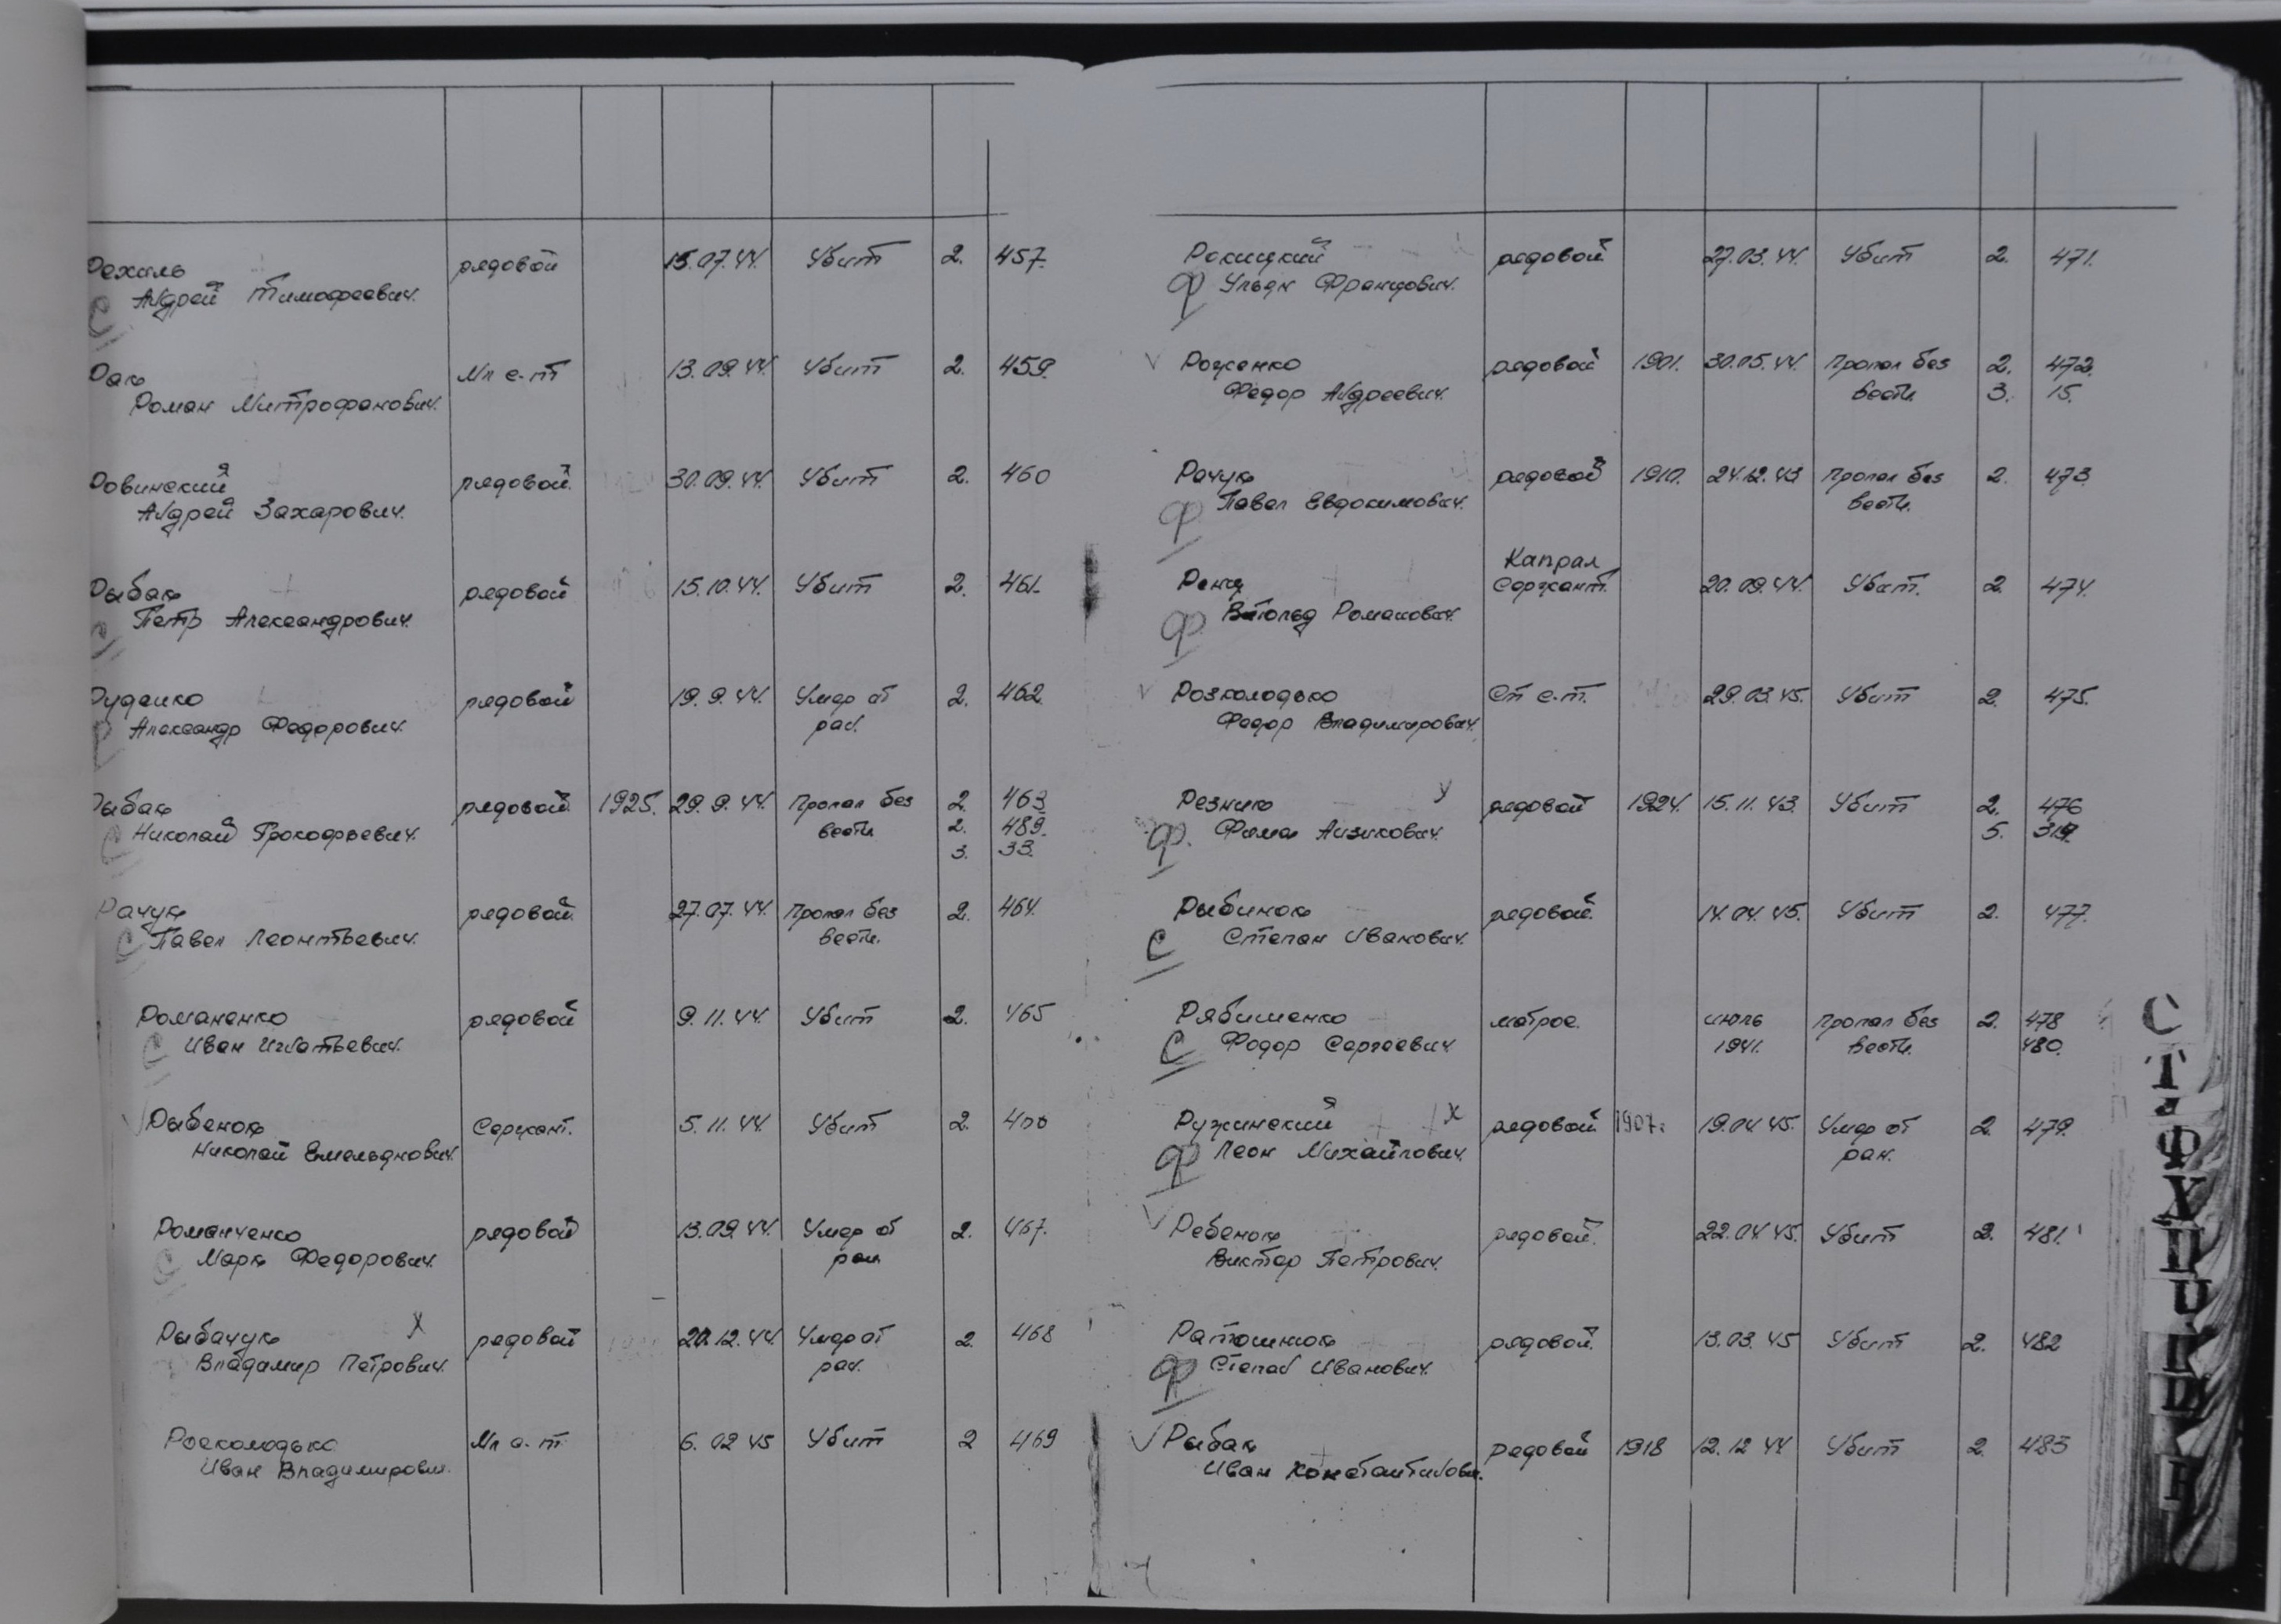 Рехиль рядовой 15.07.44. Убит 2. 457.
С Андрей Тимофеевич.
Рак Мл с-т 13.09.44. Убит 2. 459.
Роман Митрофанович.
Ровинский рядовой. 30.09.44. Убит 2. 460
Андрей Захарович.
Рыбак рядовой 15.10.44. Убит 2. 461.
С Петр Александрович.
Руденко рядовой 19.9.44. Умер от 2. 462.
Александр Федорович. ран.
Рыбак рядовой 1925. 29.9.44. Пропал без 2. 463
С Николай Прокофьевич. вести 2. 489.
3. 33.
Рачук рядовой. 27.07.44. Пропал без 2. 464.
С Павел Леонтьевич. вести.
Романенко рядовой 9.11.44. Убит 2. 465
С Иван Игнатьевич.
√ Рыбенок Сержант. 5.11.44. Убит 2.
Николай Емельянович.
Романченко рядовой 13.09.44. Умер от 2. 467.
С Марк Федорович. ран
Рыбачук х рядовой 20.12.44. Умер от 2. 468
Владимир Петрович. ран.
Росколодько Мл с-т 6.02 45 Убит 2 469
Иван Владимирович.
Рокицкий рядовой. 27.03.44. Убит 2. 471.
Ф Ульян Францович.
√ Роженко рядовой 1901. 30.05.44. Пропал без 2. 472.
Федор Андреевич. вести. 3. 15.
Рачук рядовой 1910. 24.12.43 Пропал без 2. 473
Ф Павел Евдокимович. вести.
Капрал
Ренц Сержант. 20.09.44. Убит. 2. 474.
Ф Витольд Романович.
√ Розколодько Ст с-т. 29.03.45. Убит 2. 475.
Федор Владимирович.
Резник у рядовой 1924. 15.11.43. Убит 2. 476
Ф. Фима Аизикович. 5. 319.
Рыбинок рядовой. 14.04.45. Убит 2. 477.
С Степан Иванович.
Рябишенко матрос. июль Пропал без 2. 478
С Федор Сергеевич 1941. вести. 480.
Ружинский х рядовой 1907. 19.04.45. Умер от 2. 479.
Ф Леон Михайлович. ран.
√ Ребенок рядовой. 22.04.45. Убит 2. 481.
Виктор Петрович.
Ратошнюк рядовой. 13.03.45 Убит 2. 482
Ф Степан Иванович.
√ Рыбак рядовой 1918 12.12 44 Убит 2. 483
Иван Константинович.
С
Т
Ф
Х